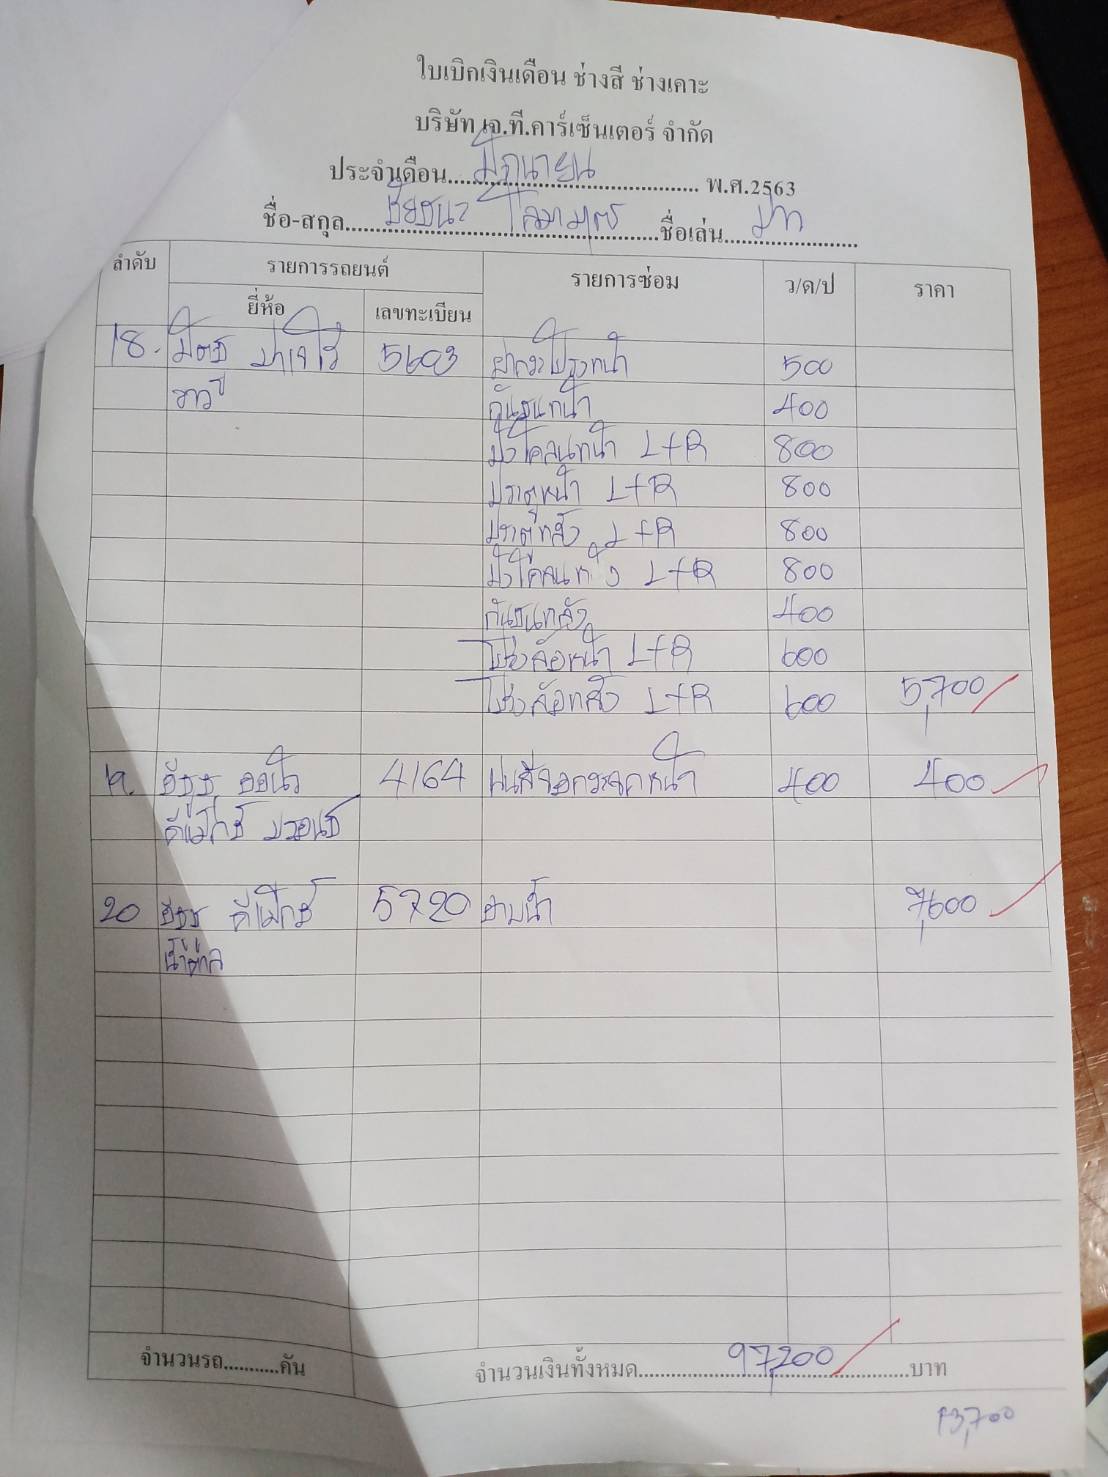 ใบเบิกเงินเดือน ช่างสี ช่างเคาะ
บริษัท เจ.ที.คาร์เซ็นเตอร์ จำกัด
ประจำเดือน..... มิถุนายน ..... พ.ศ.2563
ชื่อ-สกุล..... ชัยชนะ .....ชื่อเล่น.....
ลำดับ รายการรถยนต์ รายการซ่อม ว/ด/ป ราคา
ยี่ห้อ เลขทะเบียน
18. มิตซู ปาเจโร่ 5603 ฝากระโปรงหน้า 500
กันชนหน้า 400
บังโคลนหน้า L+R 800
ประตูหน้า L+R 800
ประตูหลัง L+R 800
บังโคลนหลัง L+R 800
กันชนหลัง 400
โป่งล้อหน้า L+R 600
โป่งล้อหลัง L+R 600 5,700
19. อีซูซุ 4164 พ่นสีจอกระจกหน้า 400 400
ดีแม็กซ์ บรอนซ์
20 อีซูซุ ดีแม็กซ์ 5720 อาบน้ำ 7,600
น้ำตาล
จำนวนรถ...........คัน จำนวนเงินทั้งหมด..... 97,200 .....บาท
13,700